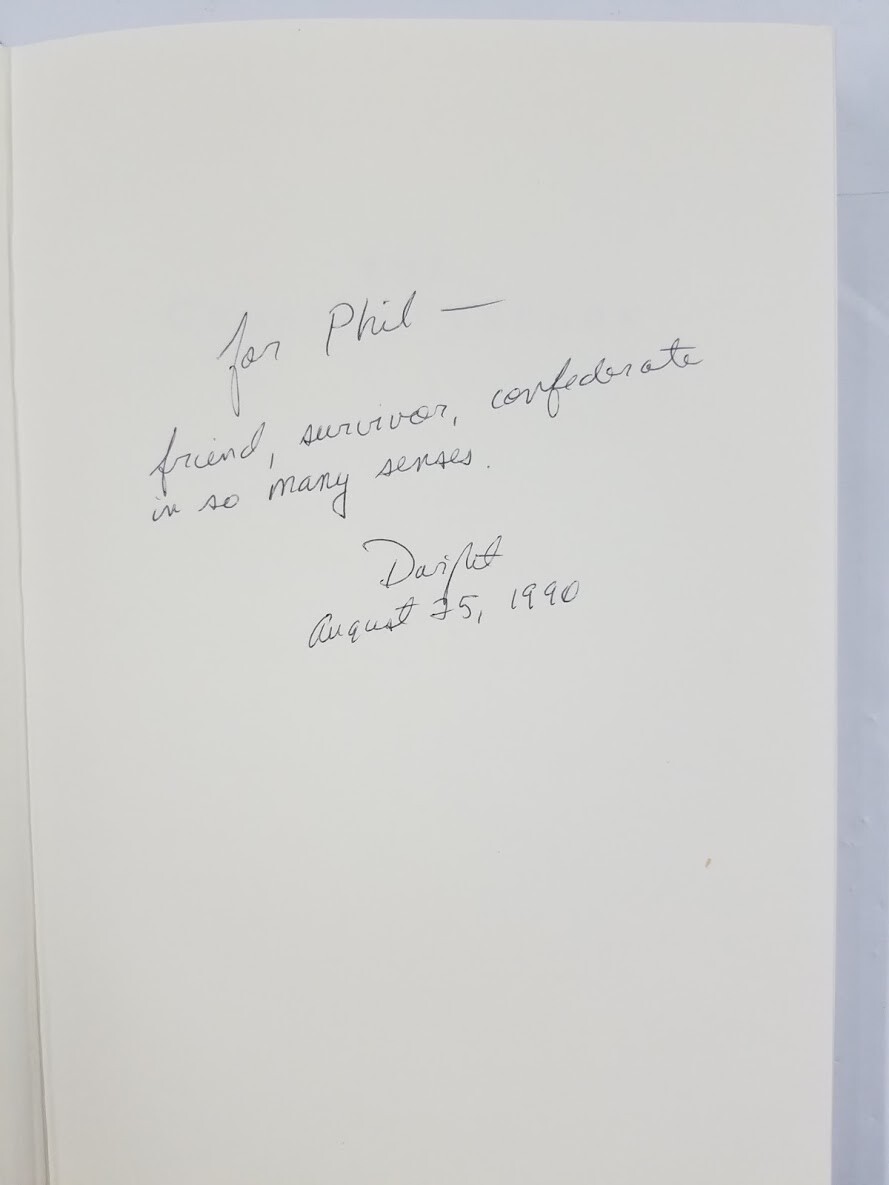 for Phil —
friend, survivor, confederate
in so many senses.
Dwight
August 25, 1990